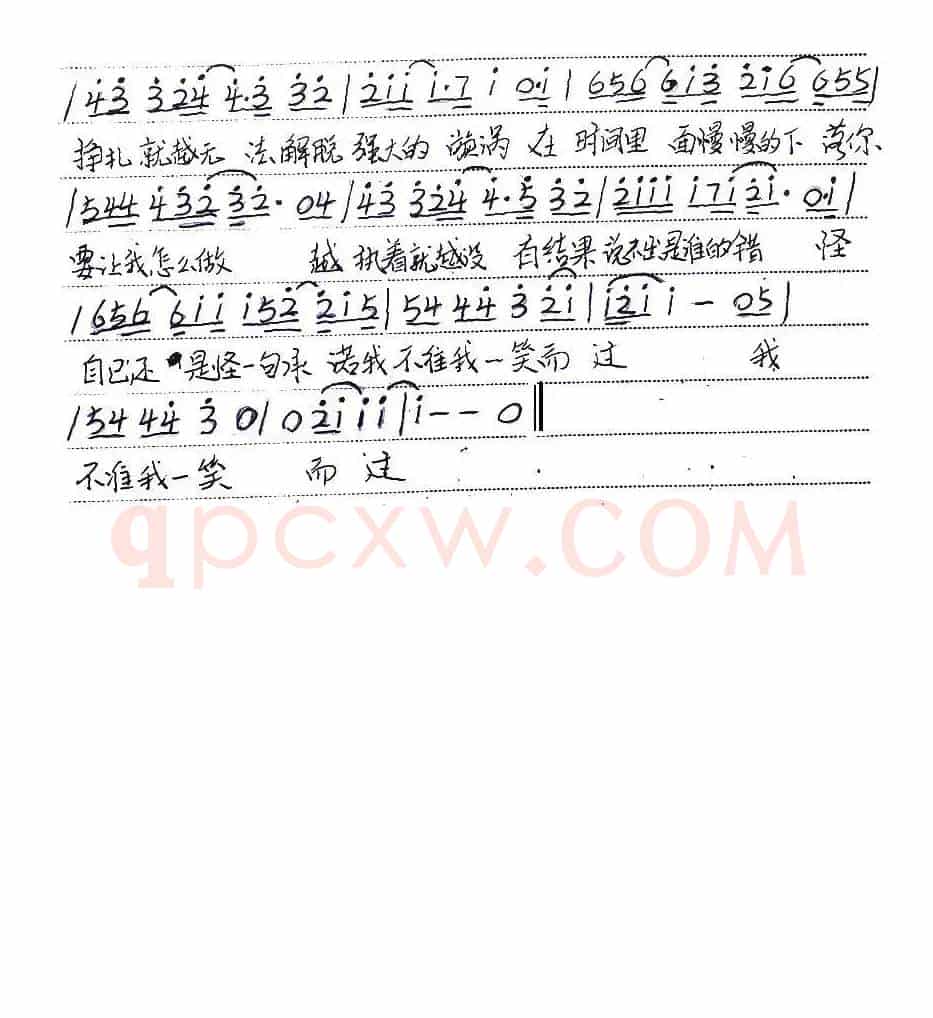 | 4̇3̇ 3̇2̇4̇ 4̇·3̇ 3̇2̇ | 2̇1̇1̇ 1̇·7 1̇ 0·1̇ | 656 61̇3̇ 2̇1̇6 655 |
挣扎就越无 法解脱 强大的 漩涡 在 时间里 面慢慢的下 落你
| 544 4̇3̇2̇ 3̇2̇· 04 | 4̇3̇ 3̇2̇4̇ 4̇·5̇ 3̇2̇ | 2̇1̇1̇1̇ 1̇71̇ 2̇1̇· 0·1̇ |
要让我怎么做 越 执着就越没 有结果 说不出是谁的错 怪
| 656 61̇1̇ 1̇52̇ 2̇1̇5 | 54 44 3̇ 2̇1̇ | 1̇2̇1̇ 1̇ — 05 |
自己还 是怪一句承 诺我 不准我一笑而 过 我
| 54 44 3̇ 0 | 0 2̇1̇ 1̇ 1̇ | 1̇ — — 0 ‖
不准我一笑 而 过
qpcxw.COM